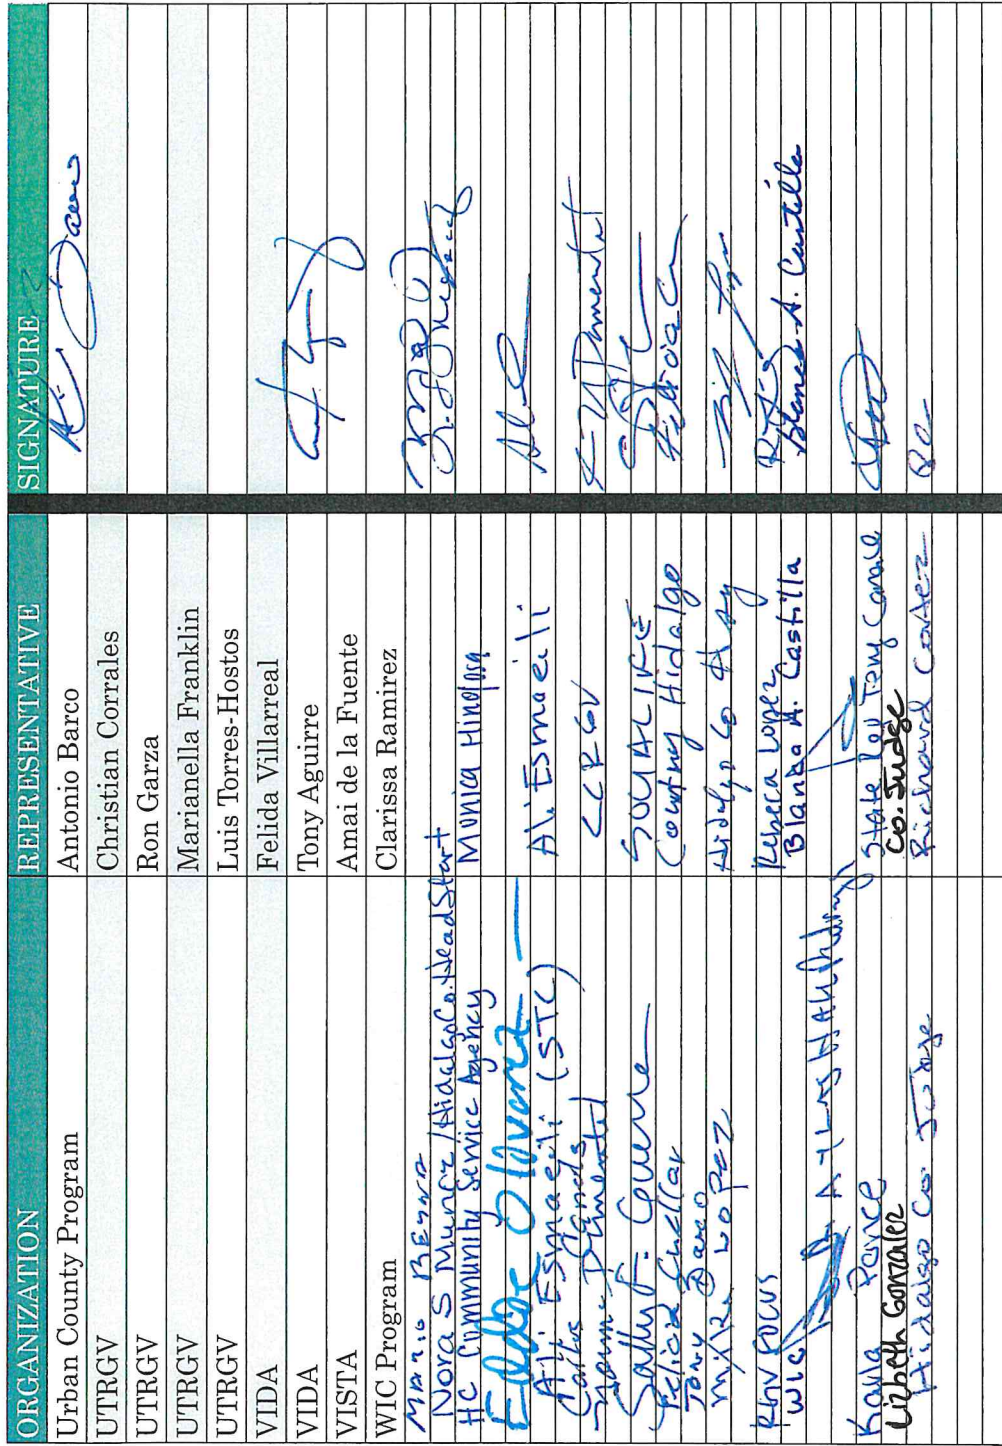 ORGANIZATION REPRESENTATIVE SIGNATURE
Urban County Program Antonio Barco
UTRGV Christian Corrales
UTRGV Ron Garza
UTRGV Marianella Franklin
UTRGV Luis Torres-Hostos
VIDA Felida Villarreal
VIDA Tony Aguirre
VISTA Amai de la Fuente
WIC Program Clarissa Ramirez
Mario Reyna
Nora S Munoz / Hidalgo Co. Head Start
HC Community Service Agency Monica Hinojosa
Eddie Olivarez
Ali Esmaeili (STC) Ali Esmaeili
Carlos
Pimentel
Sally F. SOCALIFE
Felicia Cuellar Courtney Hidalgo
Tony Hidalgo Co
Mike Lopez
RGV FOCUS Rebeca Lopez
WIC Blanca A. Castilla Blanca A. Castilla
Karla Ponce State Rep Terry Canales
Lizbeth Gonzalez Co. Judge
Hidalgo Co. Judge Richard Cortez RC